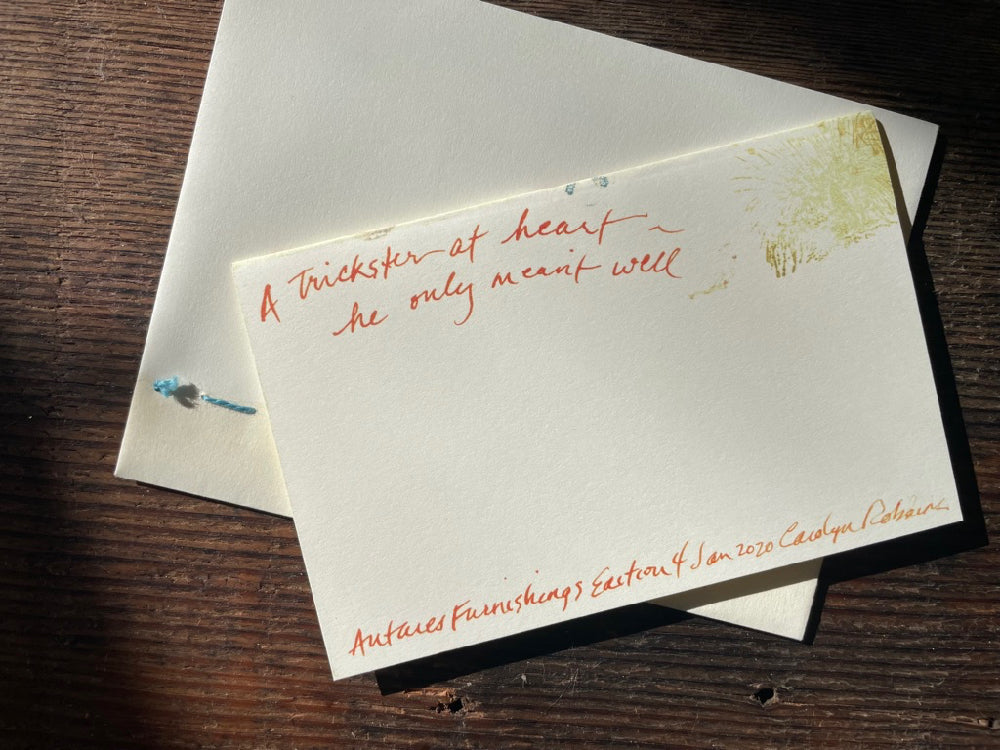 A Trickster at heart ~
he only meant well
Antares Furnishings Edition 4 Jan 2020 Carolyn Robbins